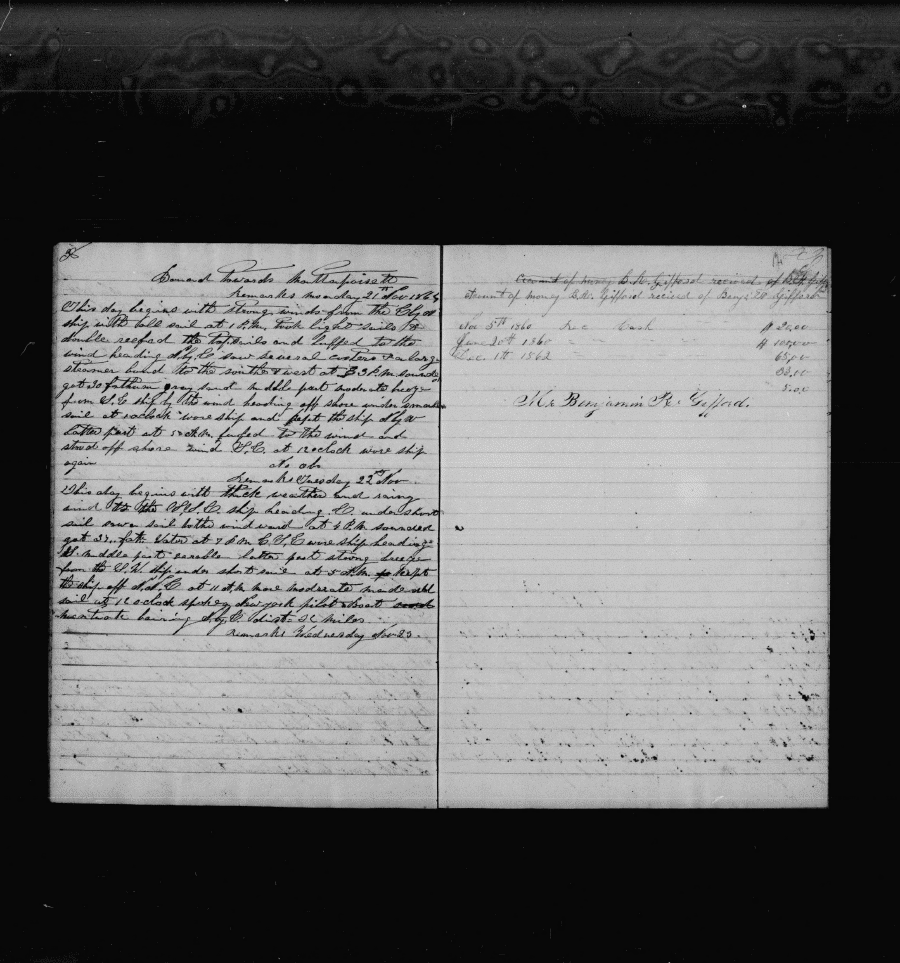 Bound towards Mattapoisett
Remarks Monday 21st Nov 1864
This day begins with strong winds from the S by W
ship with all sail at 1 P.M. took light sails &
double reefed the topsails and luffed to the
wind heading saw several coasters & a large
steamer bound to the south & west at 3 P.M. sounded
got 30 fathom gray sand middle part moderate breeze
from S.E ship by the wind heading off shore under small
sail at 10 oclock wore ship and kept the ship
Latter part at A.M. luffed to the wind and
stood off shore wind S.E. at 12 oclock wore ship
again no obs
Remarks Tuesday 22nd Nov
This day begins with thick weather and rainy
wind to the ship heading E. under short
sail sawa sail to the windward at 4 P.M sounded
got 37 fath Water at 7 P.M wore ship heading
W. middle part latter part strong breeze
from the ship under short sail at 5 A.M. kept
the ship off at 11 A.M more moderate made all
sail at 12 oclock spoke New york pilot boat
bearing dist miles
Remarks Wednesday Nov 23
Account of money B.R. Gifford recived of
Acount of money B.R. Gifford recived of Benj. R Gifford
5th 1860 Rec Cash $ 20,00
June 20th 1860 " " $ 100,00
Dec. 1th 1862 " 65,00
5,00
Mr Benjamin R. Gifford.